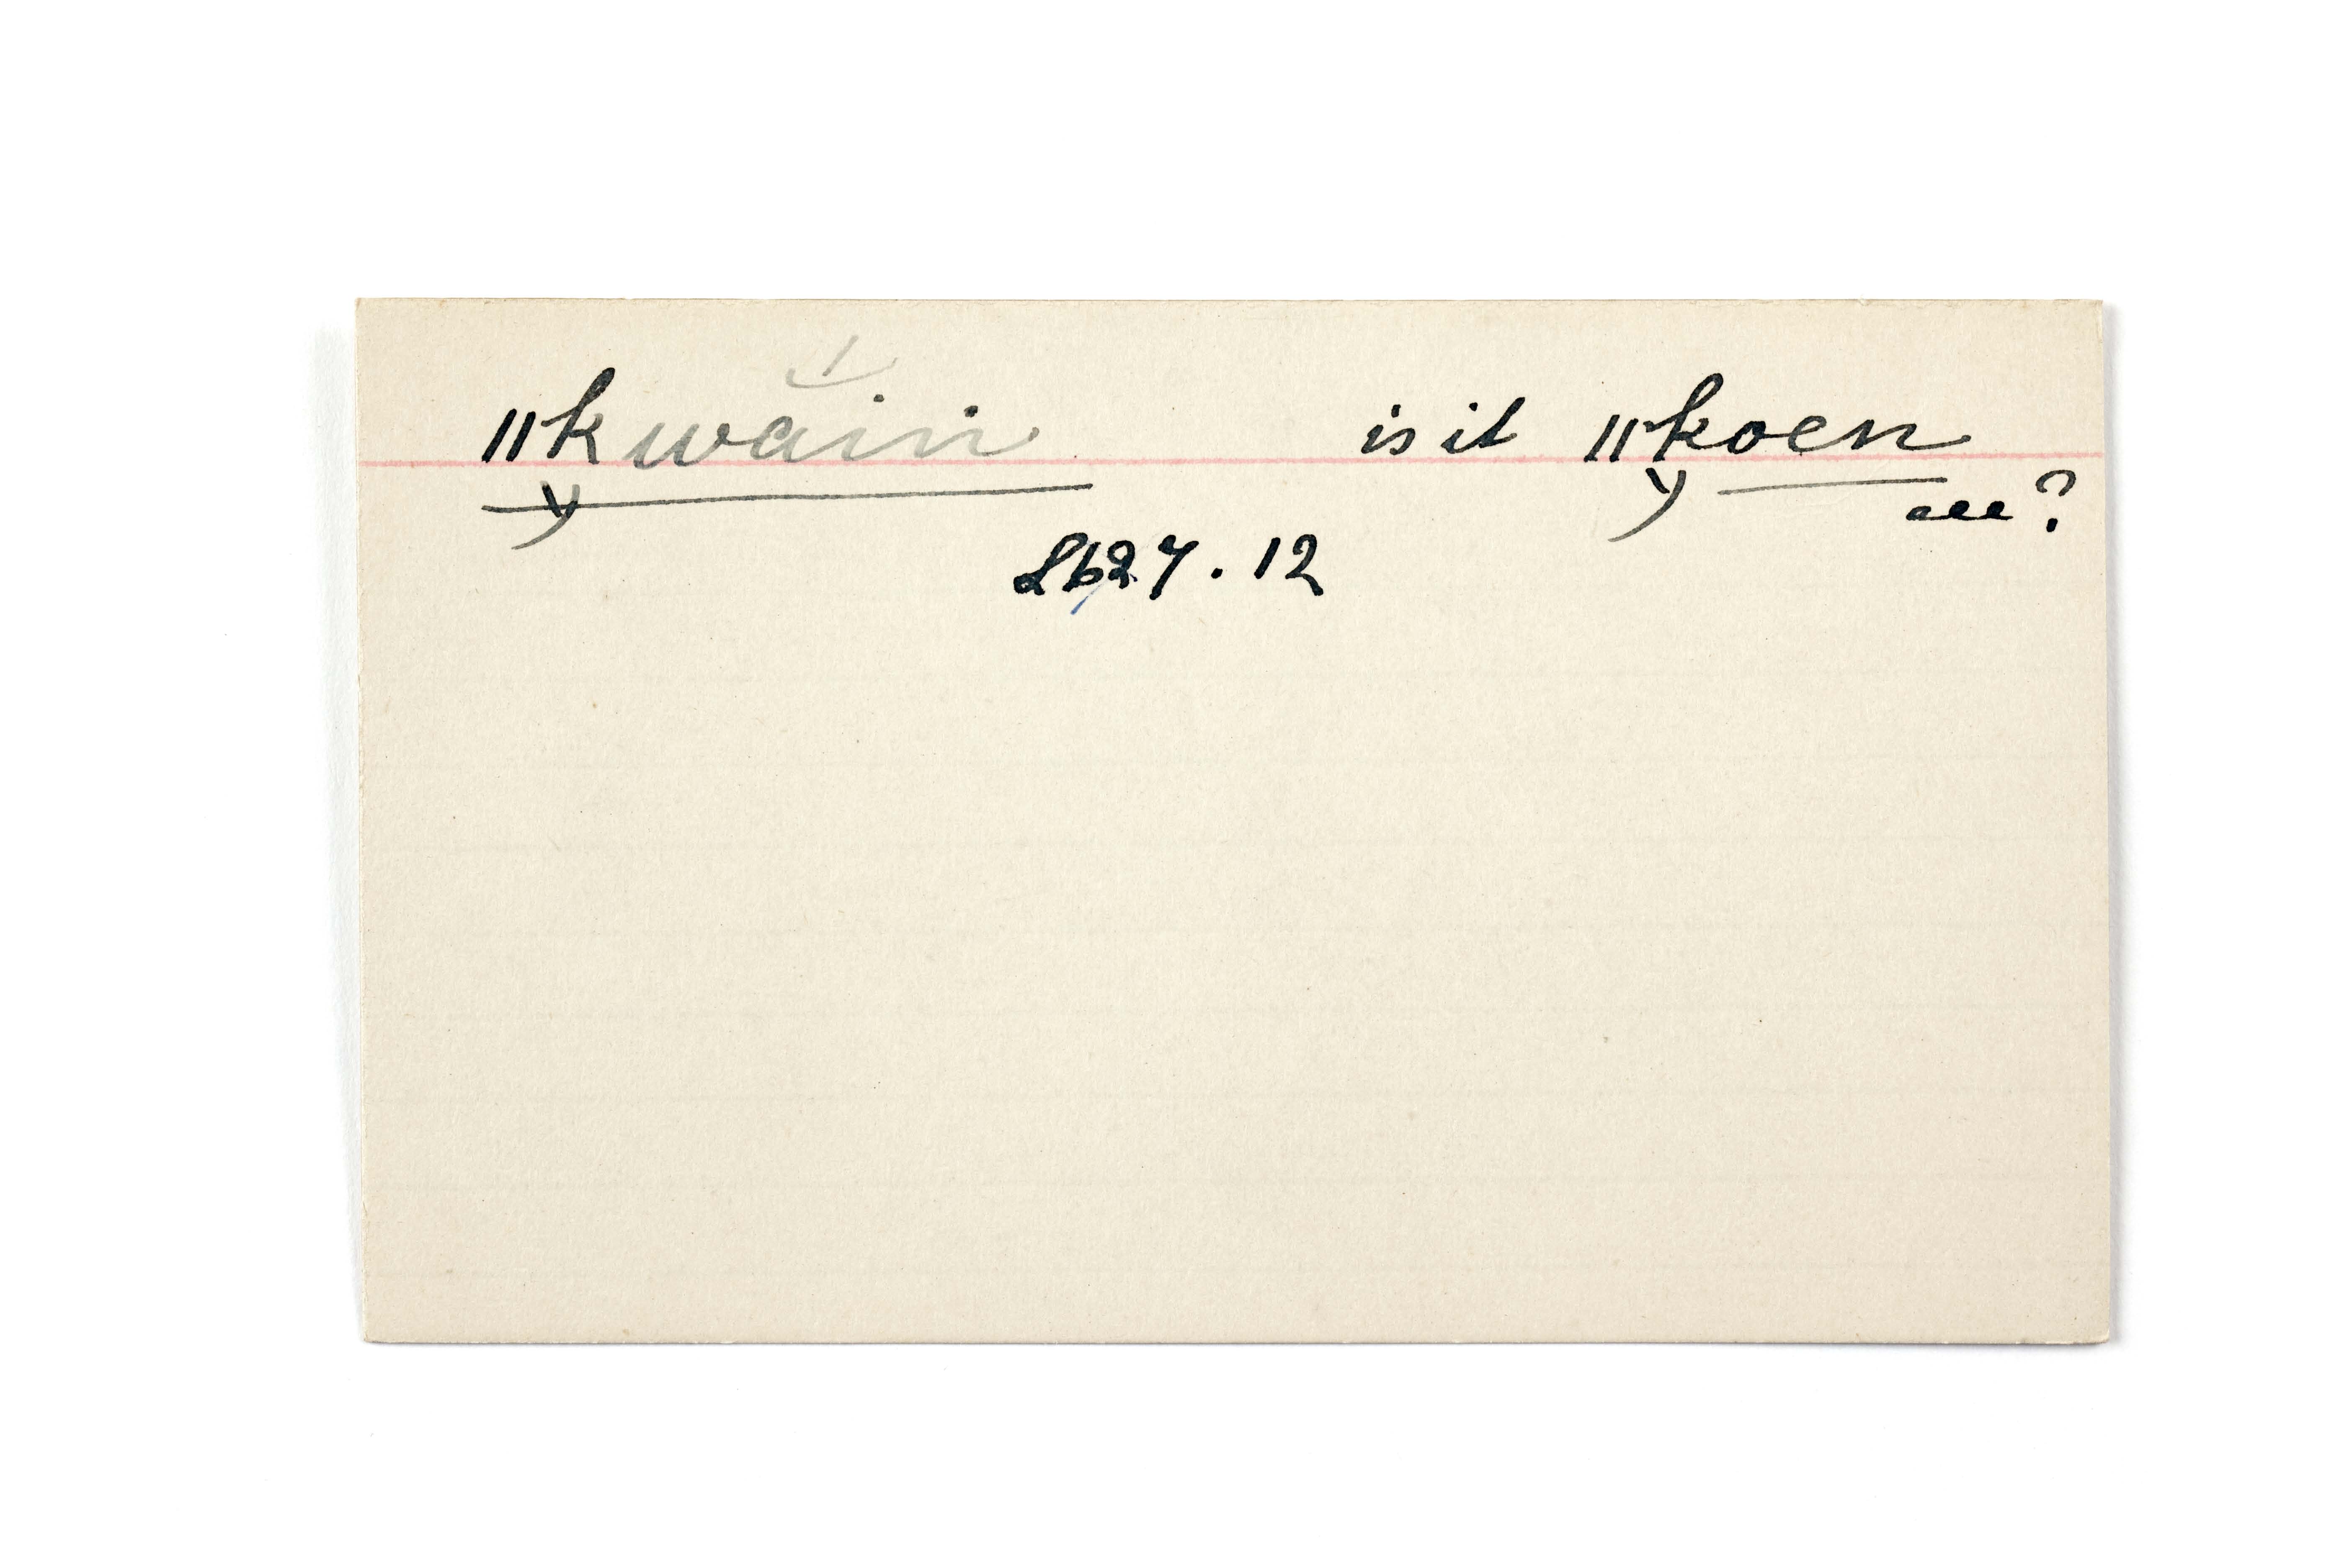 ǁkwain is it ǁkoen
all?
Lb27.12